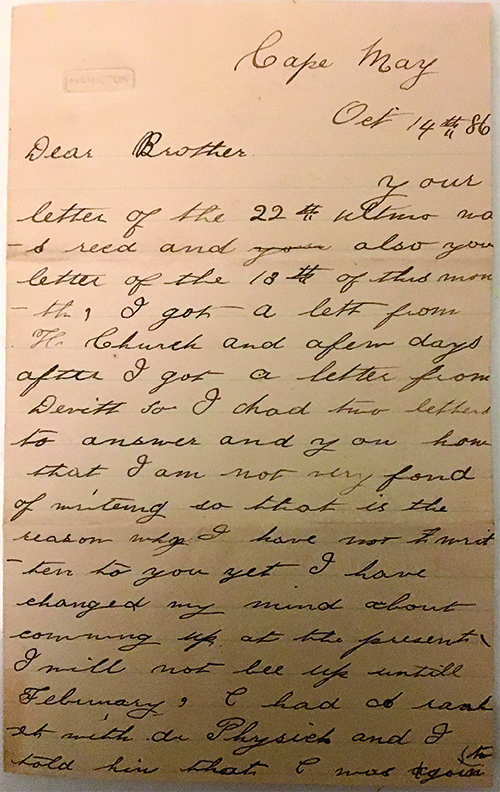 HAMILTON
Cape May
Oct 14th 86
Dear Brother
your
letter of the 22th ultmo wa
-s recd and your also you
letter of the 13th of this mon
-th, I got a lett from
H Church and afew days
after I got a letter from
Devitt so I had two letters
to answer and you know
that I am not very fond
of writeing so that is the
reason why I have not writ
-ten to you yet I have
changed my mind about
comming up at the present,
I will not bee up untill
Feburary, I had a
with dr Physick and I
told him that I was